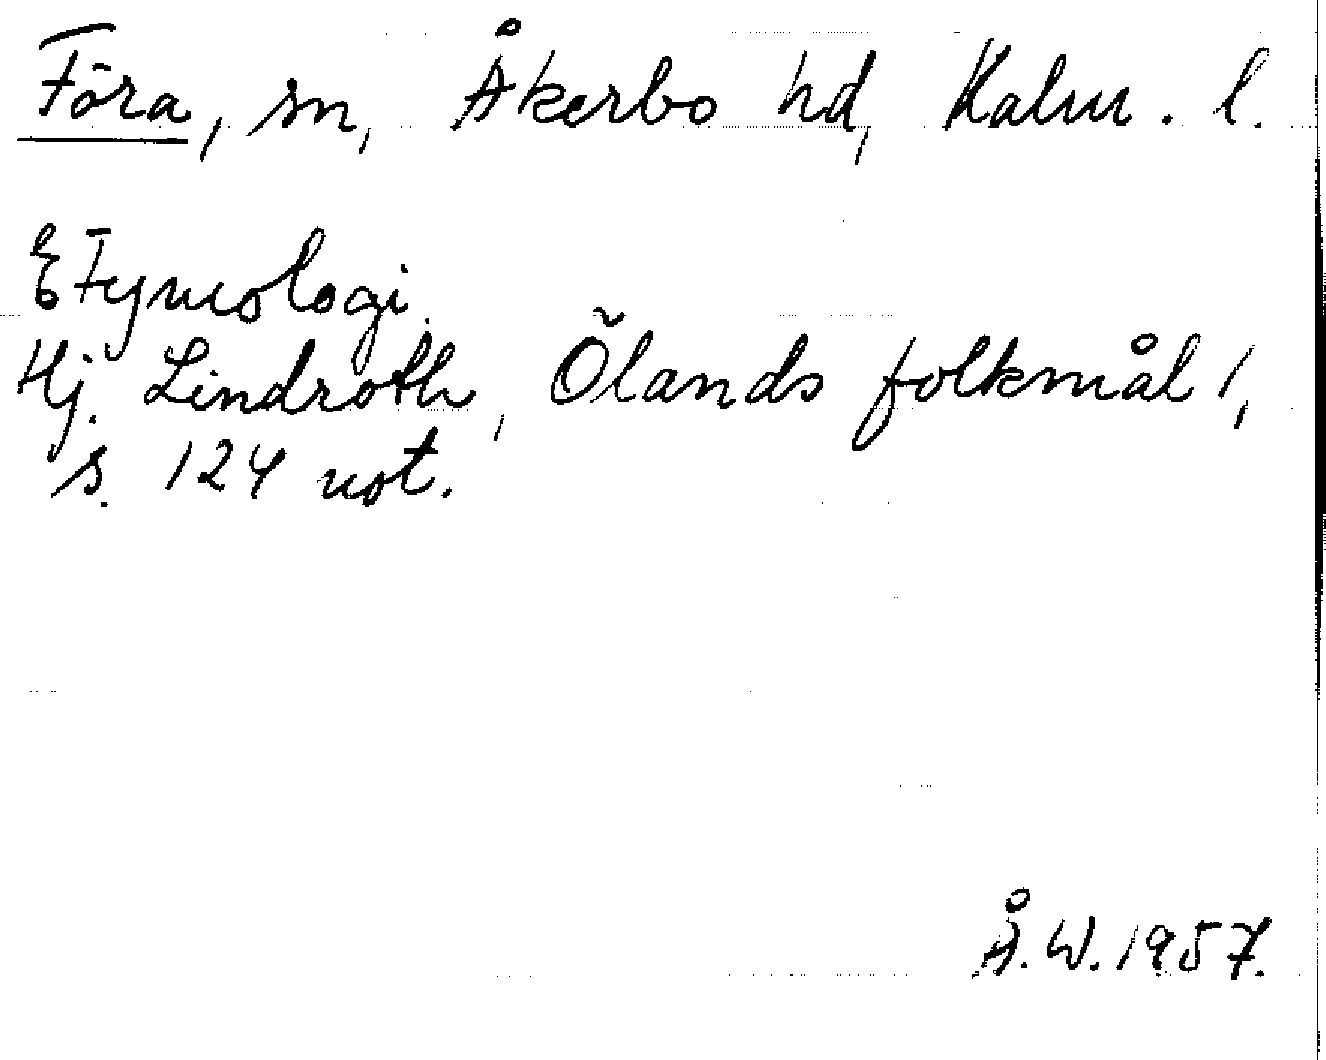 Föra, sn, Åkerbo hd, Kalm. l.
Etymologi.
Hj. Lindroth, Ölands folkmål 1,
s. 124 not.
Å.W. 1957.